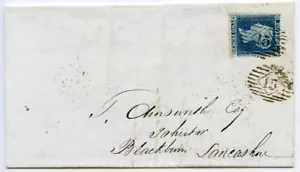 T. Ainsworth Esq
Blackburn Lancashire
15